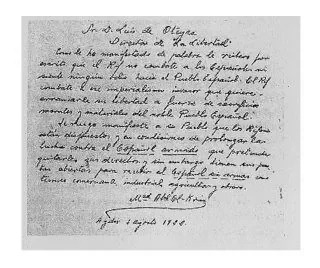 Sr. D. Luis de Oteyza
Director de "La Libertad"
Como le he manifestado de palabra le reitero por
escrito que el Rif no combate a los Españoles ni
siente ningun odio hacia el Pueblo Español. El Rif
combate a ese imperialismo invasor que quiere
arrancarle su libertad a fuerza de sacrificios
morales y materiales del noble Pueblo Español.
Le ruego manifieste a su Pueblo que los Rifeños
están dispuestos y en condiciones de prolongar la
lucha contra el Español armado que pretende
quitarles sus derechos y sin embargo tienen sus puer
tas abiertas para recibir al Español sin armas como
técnico comerciante, industrial, agricultor y obrero.
Mhd Abd-El-Krim
Aydir 2 agosto 1922.